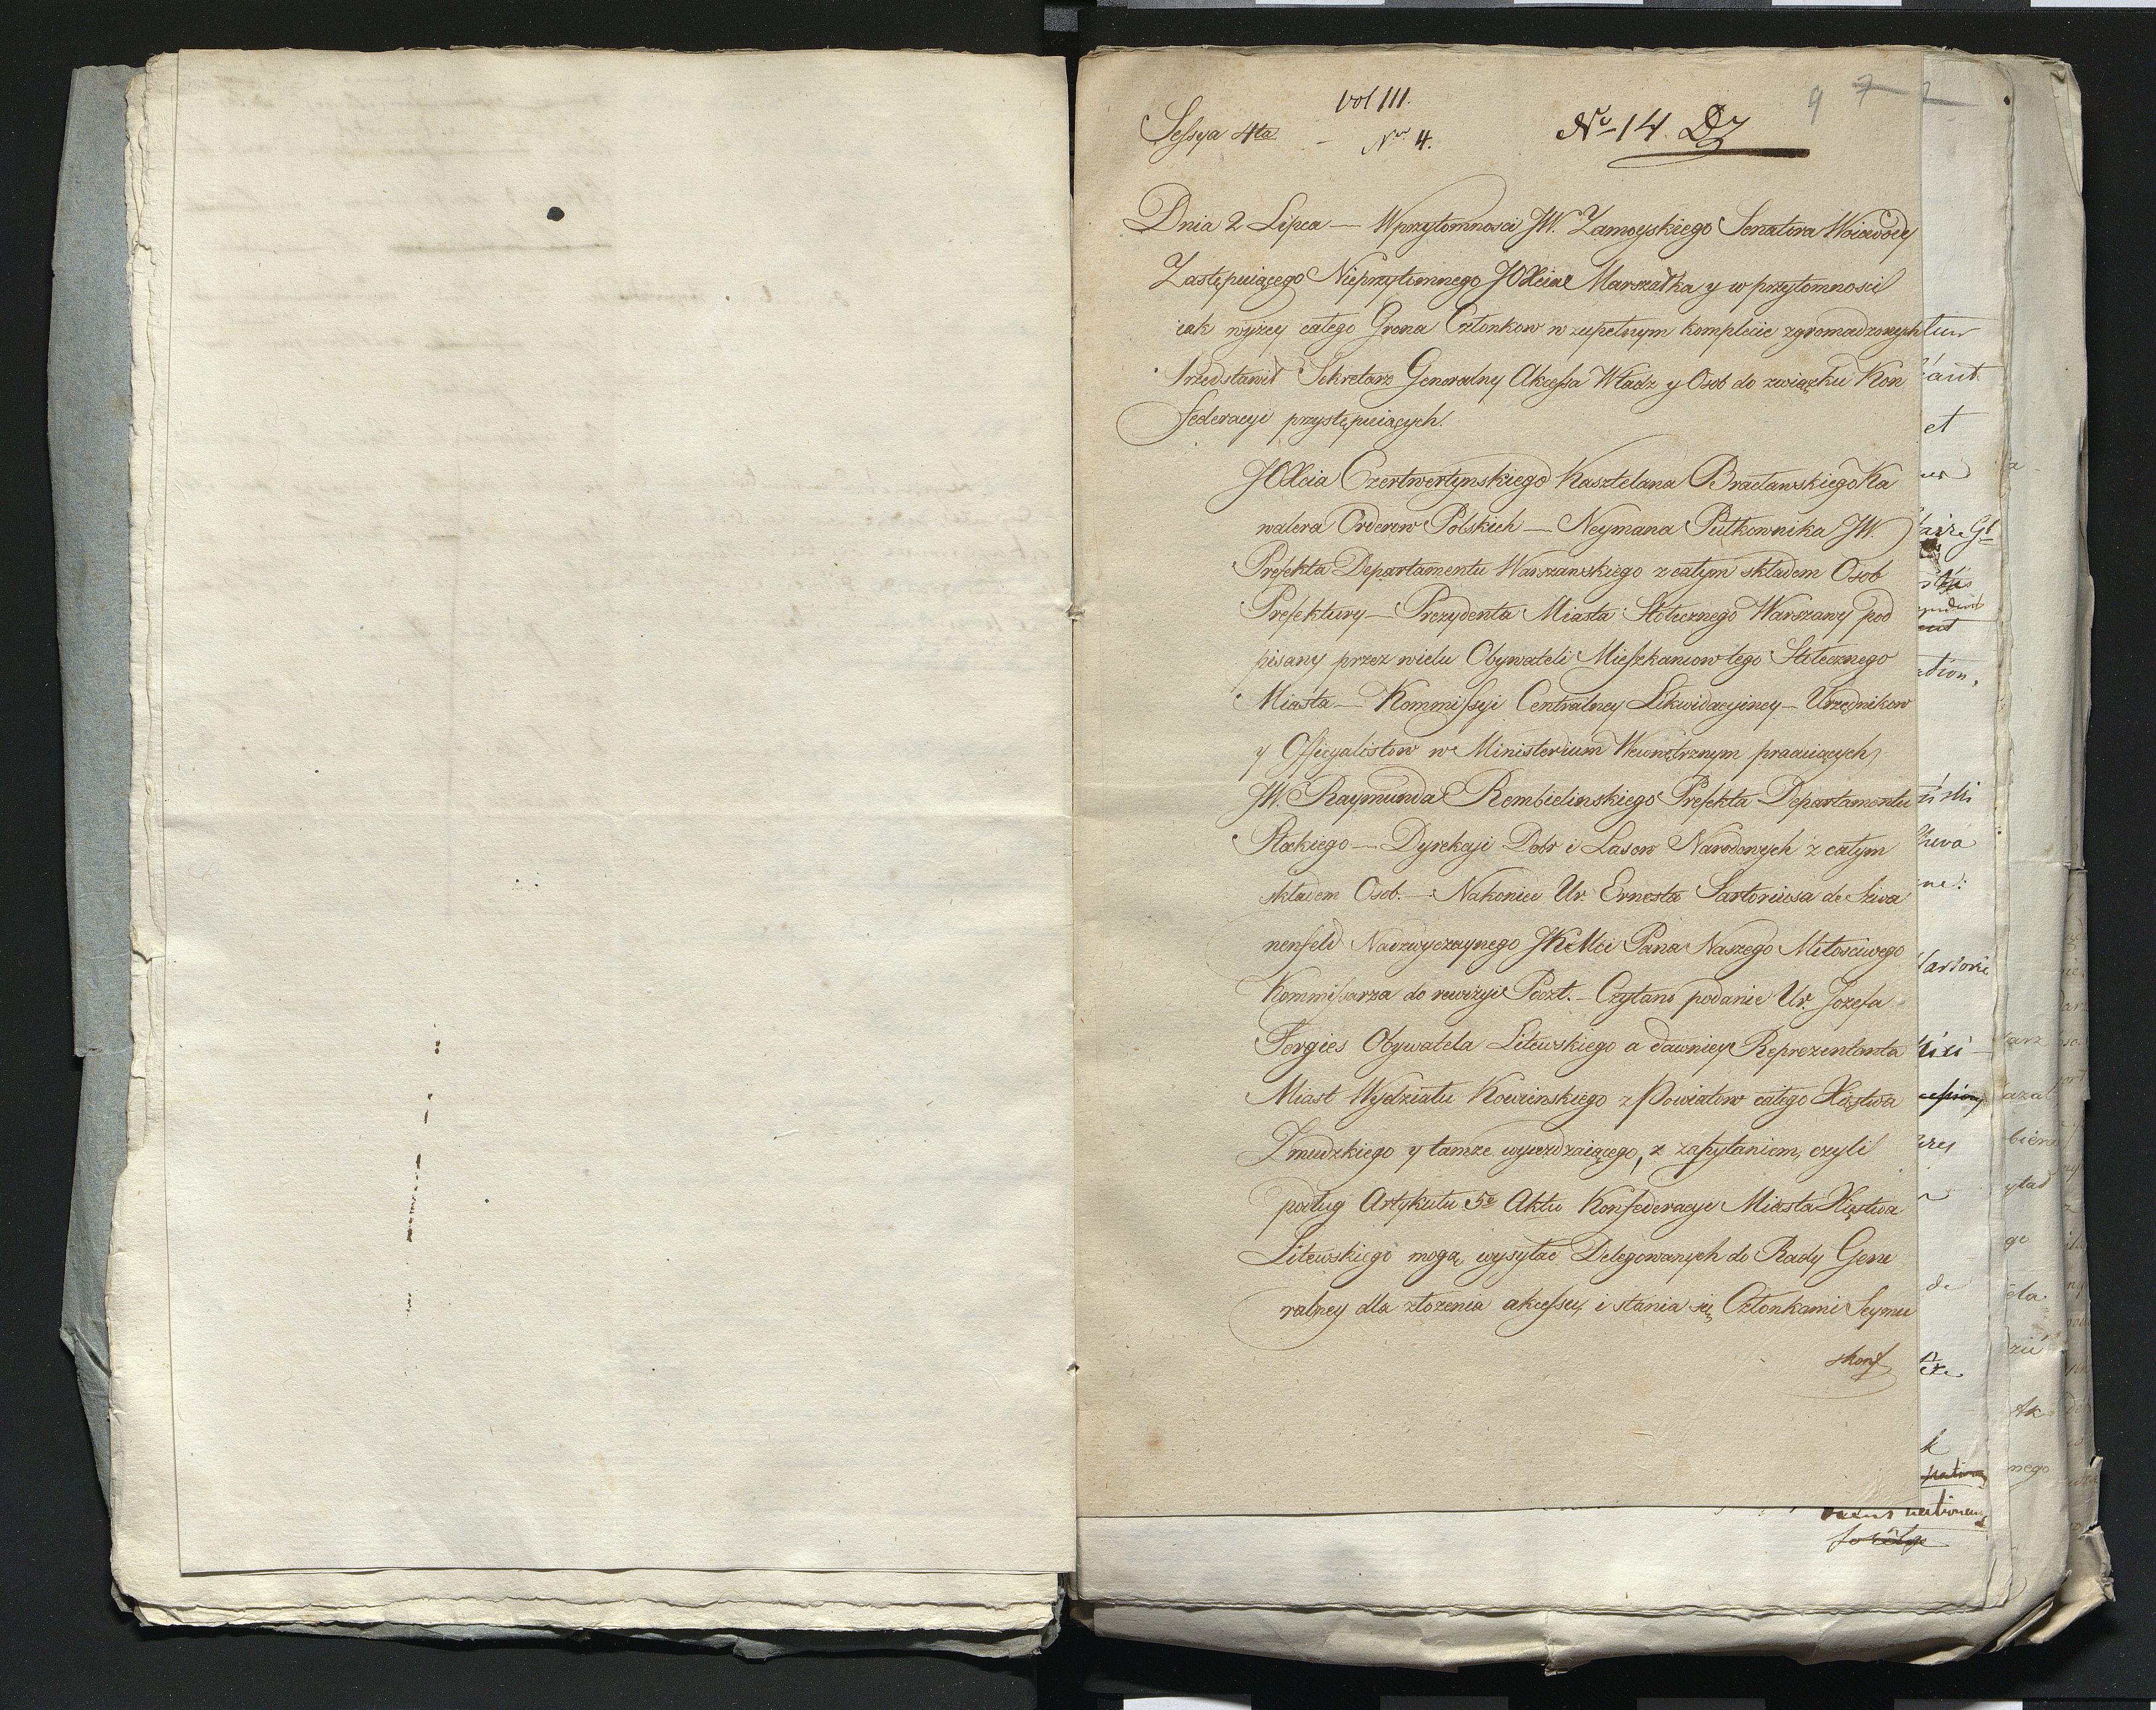 vol III.
9 7 2
Sessya 4ta – Nro 4. No 14 Dz
Dnia 2 Lipca — W przytomnosci JW. Zamoyskiego Senatora Woiewody
Zastępuiącego Nieprzytomnego JOXcia Marszałka y w przytomnosci
iak wyżey całego Grona Członkow w zupełnym komplecie zgromadzonych
Przedstawił Sekretarz Generalny Akcessa Władz y Osob do związku Kon
federacyi przystępuiących.
JOXcia Czertwertynskiego Kasztelana Bracławskiego Ka
walera Orderow Polskich — Neymana Pułkownika JW.
Prefekta Departamentu Warszawskiego z całym składem Osob
Prefektury — Prezydenta Miasta Stołecznego Warszawy pod
pisany przez wielu Obywateli Mieszkancow tego Stołecznego
Miasta — Kommissyi Centralney Likwidacyiney — Urzędnikow
y Officyalistow w Ministerium Wewnętrznym pracuiących
JW. Raymunda Rembielinskiego Prefekta Departamentu
Płockiego — Dyrekcyi Dobr i Lasow Narodowych z całym
składem Osob. — Nakoniec Ur. Ernesta Sartoriusa de Szwa
nenfeld Nadzwyczaynego JKMci Pana Naszego Miłosciwego
Kommissarza do rewizyi Poczt. — Czytano podanie Ur. Jozefa
Forgies Obywatela Litewskiego a dawniey Reprezentanta
Miast Wydziału Kowienskiego z Powiatow całego Xięstwa
Zmudzkiego y tamże wyieżdzaiącego, z zapytaniem, czyli
podług Artykułu 5o Aktu Konfederacyi Miasta Xięstwa
Litewskiego mogą wysyłac Delegowanych do Rady Gene
ralney dla złożenia akcessu, i stania się Członkami Seymu
skonf